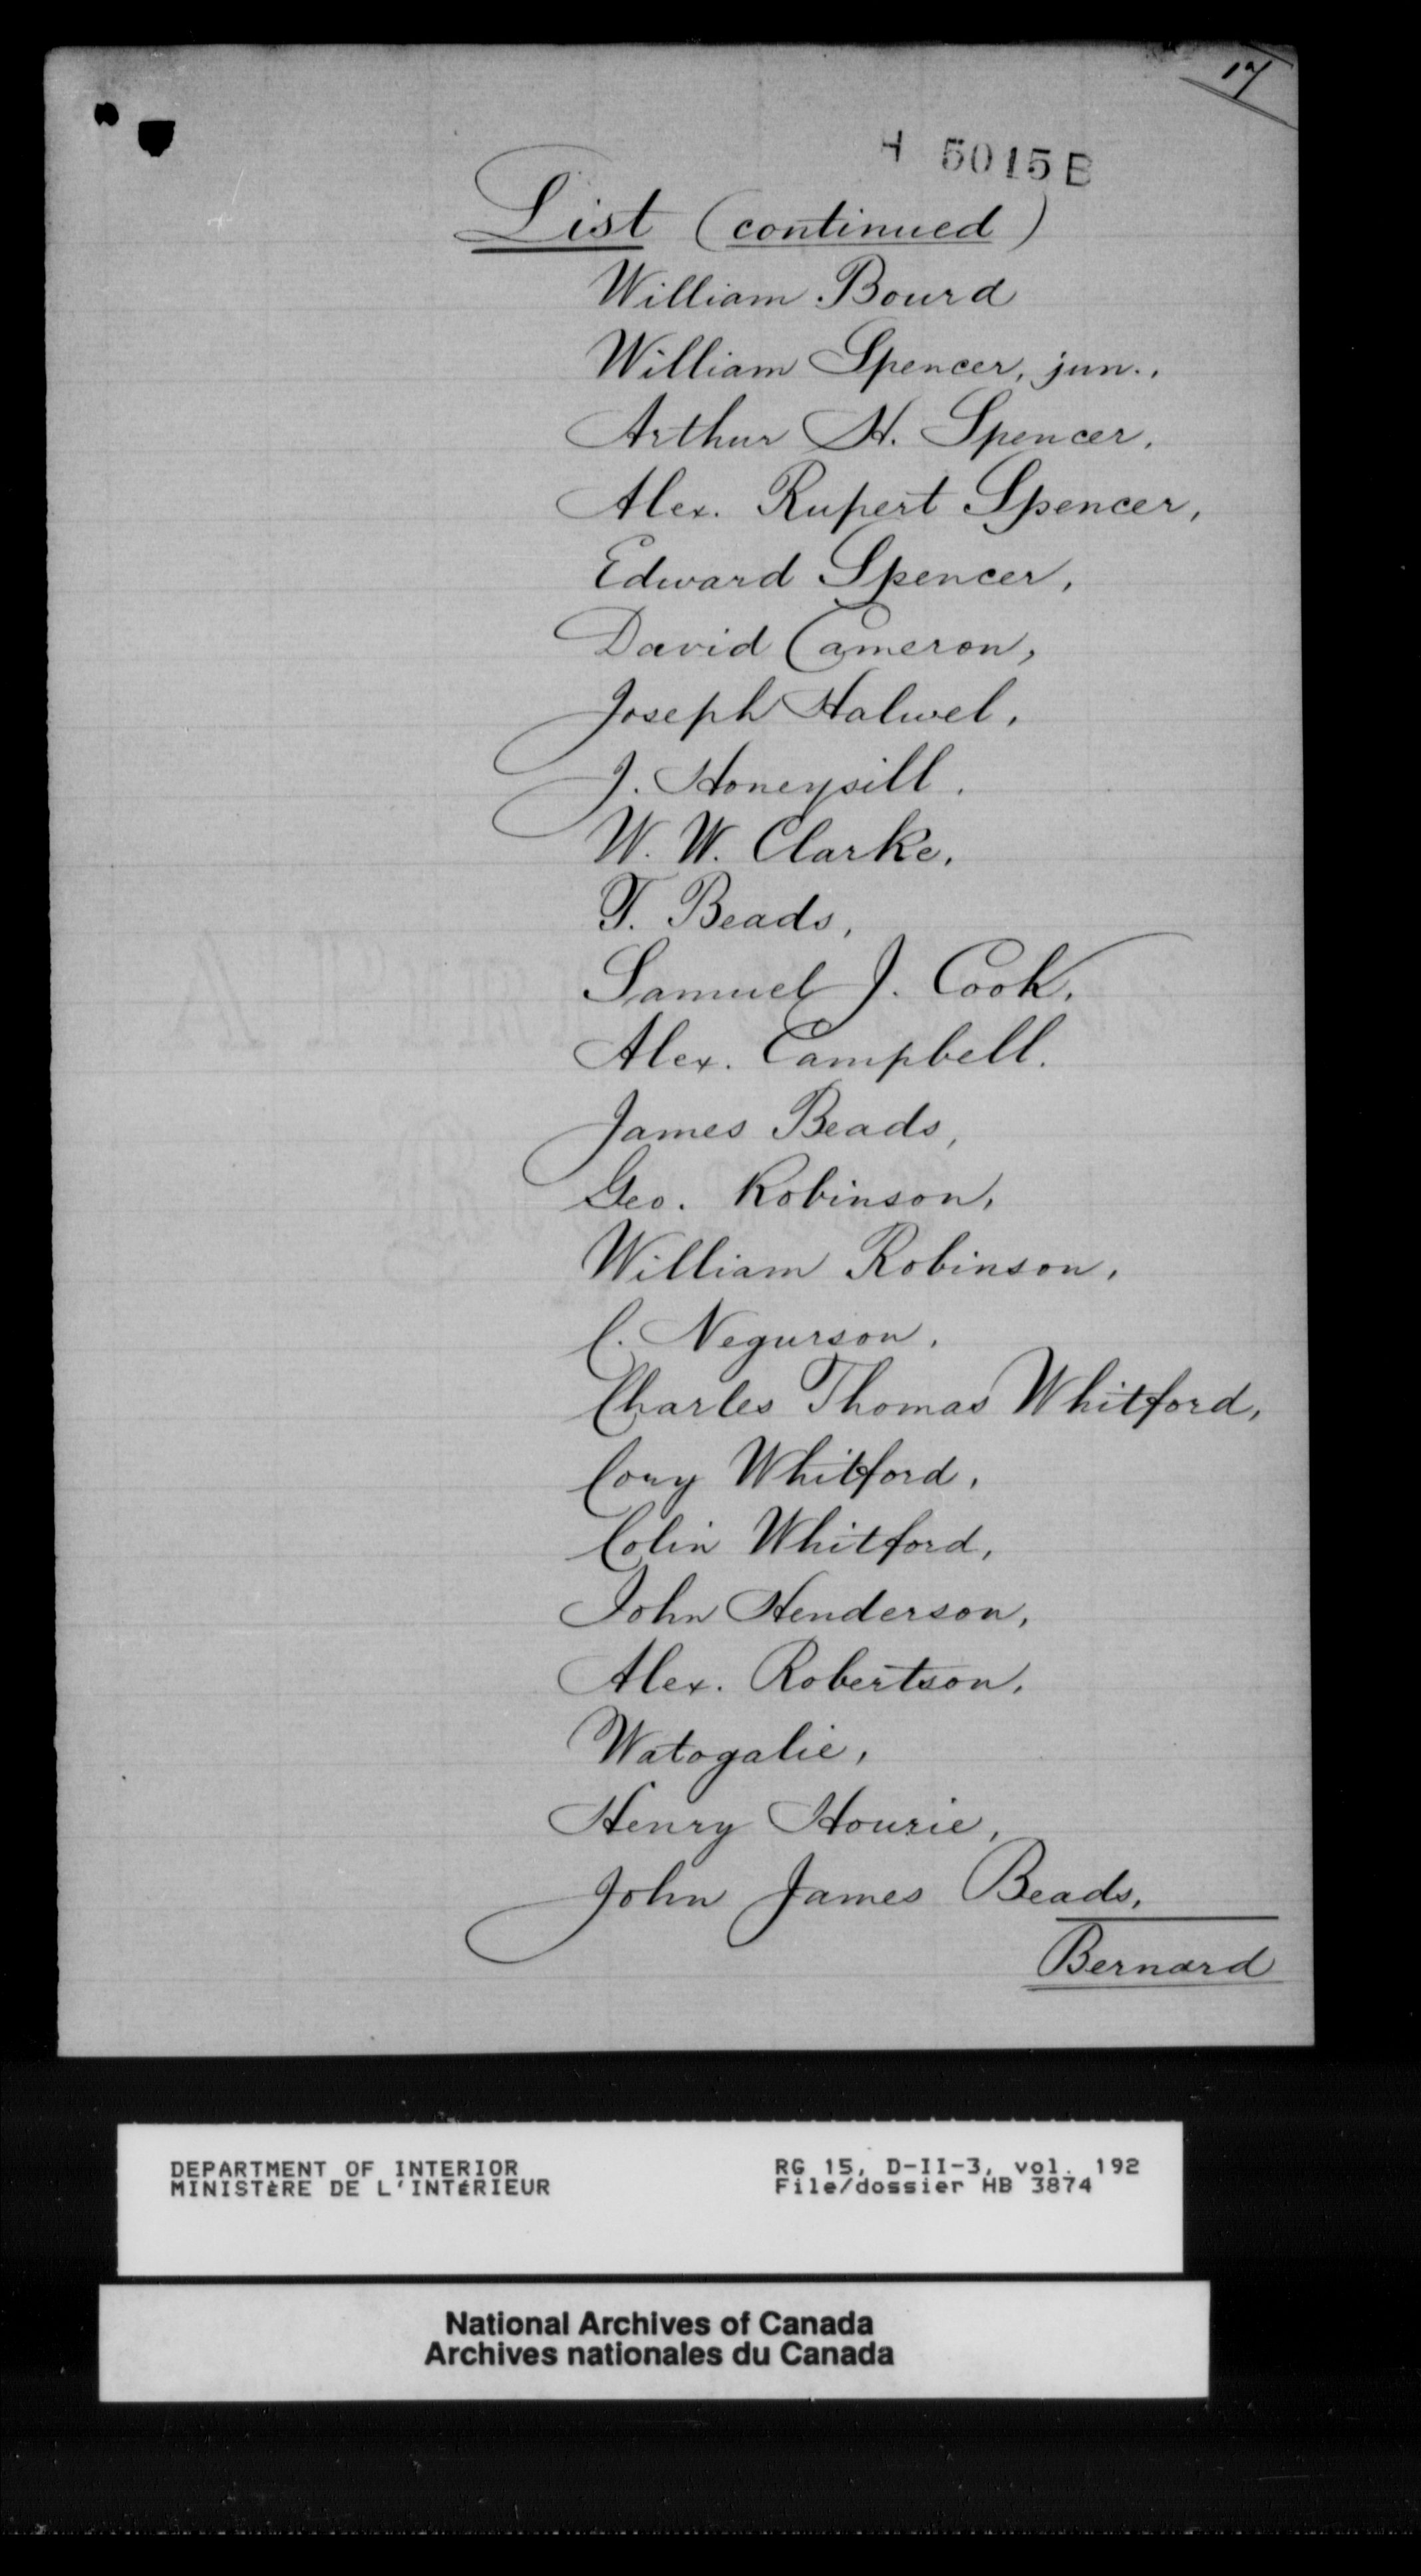 17
H 5015 B
List (continued)
William Bourd
William Spencer, jun.,
Arthur H. Spencer.
Alex. Rupert Spencer,
Edward Spencer,
David Cameron,
Joseph Halwel,
J. Honeysill.
W. W. Clarke,
T. Beads,
Samuel J. Cook,
Alex. Campbell.
James Beads,
Geo. Robinson,
William Robinson,
C. Negurson,
Charles Thomas Whitford,
Cory Whitford,
Colin Whitford,
John Henderson,
Alex. Robertson,
Watogalie,
Henry Hourie,
John James Beads,
Bernard
DEPARTMENT OF INTERIOR RG 15, D-II-3, vol. 192
MINISTÈRE DE L'INTÉRIEUR File/dossier HB 3874
National Archives of Canada
Archives nationales du Canada